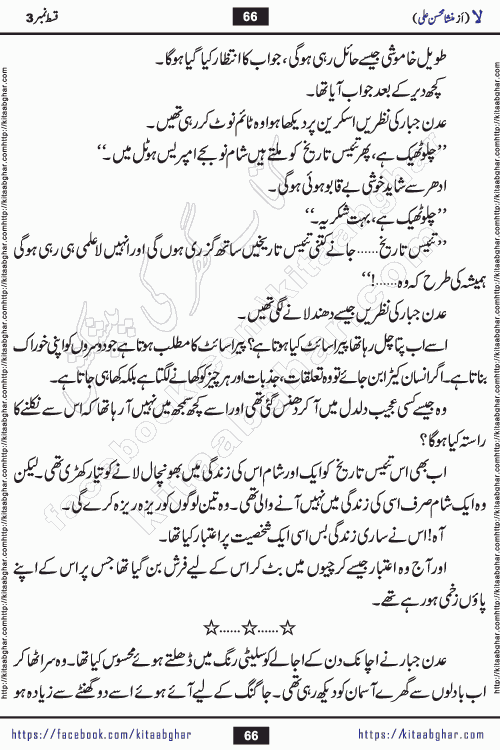 لا (از منشا محسن علی)
66
قسط نمبر 3
طویل خاموشی جیسے حائل رہی ہوگی، جواب کا انتظار کیا گیا ہوگا۔
کچھ دیر کے بعد جواب آیا تھا۔
عدن جبار کی نظریں اسکرین پر دیکھا ہوا وہ ٹائم نوٹ کر رہی تھیں۔
’’چلو ٹھیک ہے، پھر تیس تاریخ کو ملتے ہیں شام نو بجے امپریس ہوٹل میں۔‘‘
ادھر سے شاید خوشی بے قابو ہوئی ہوگی۔
’’چلو ٹھیک ہے، بہت شکریہ۔‘‘
’’تیس تاریخ...... جانے کتنی تیس تاریخیں ساتھ گزری ہوں گی اور انہیں لاعلمی ہی رہی ہوگی
ہمیشہ کی طرح کہ وہ......!‘‘
عدن جبار کی نظریں جیسے دھندلانے لگی تھیں۔
اسے اب پتا چل رہا تھا پیراسائٹ کیا ہوتا ہے؟ پیراسائٹ کا مطلب ہوتا ہے جو دوسروں کو اپنی خوراک
بناتا ہے۔ اگر انسان کیڑا بن جائے تو وہ تعلقات، جذبات اور ہر چیز کو کھانے لگتا ہے بلکہ کھا ہی جاتا ہے۔
وہ جیسے کسی عجیب دلدل میں آ کر دھنس گئی تھی اور اسے کچھ سمجھ میں نہیں آ رہا تھا کہ اس سے نکلنے کا
راستہ کیا ہوگا؟
اب بھی اس تیس تاریخ کو ایک اور شام اس کی زندگی میں بھونچال لانے کو تیار کھڑی تھی۔ لیکن
وہ ایک شام صرف اسی کی زندگی میں نہیں آنے والی تھی۔ وہ تین لوگوں کو ریزہ ریزہ کرے گی۔
آہ! اس نے ساری زندگی بس اسی ایک شخصیت پر اعتبار کیا تھا۔
اور آج وہ اعتبار جیسے کرچیوں میں بٹ کر اس کے لیے فرش بن گیا تھا جس پر اس کے اپنے
پاؤں زخمی ہو رہے تھے۔
☆......☆......☆
عدن جبار نے اچانک دن کے اجالے کو سلیٹی رنگ میں ڈھلتے ہوئے محسوس کیا تھا۔ وہ سر اٹھا کر
اب بادلوں سے گھرے آسمان کو دیکھ رہی تھی۔ جاگنگ کے لیے آئے ہوئے اسے دو گھنٹے سے زیادہ ہو
https://facebook.com/kitaabghar
66
https://kitaabghar.com